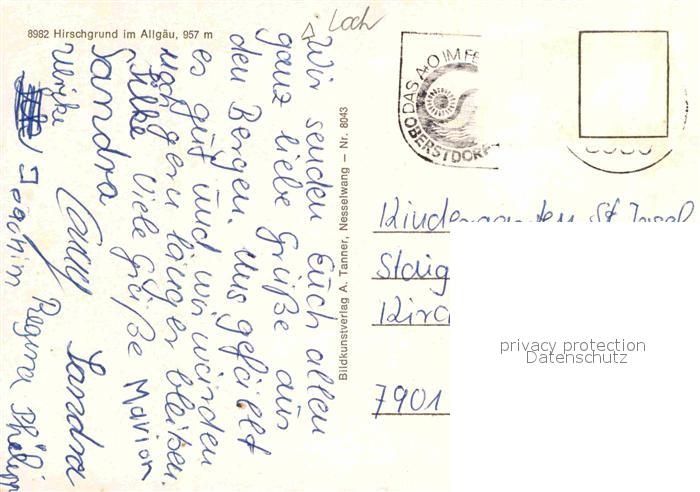 8982 Hirschgrund im Allgäu, 957 m
Loch
Wir senden Euch allen
ganz liebe Grüße aus
den Bergen. Uns gefällt
es gut und wir würden
noch gern länger bleiben.
Silke Viele Grüße Marion
Sandra Sandra
Ulrike
Joachim Regina
Bildkunstverlag A. Tanner, Nesselwang – Nr. 8043
DAS A-O IM FE
OBERSTDORF
Kindergarten St. Josef
Staig
Kirc
7901
privacy protection
Datenschutz